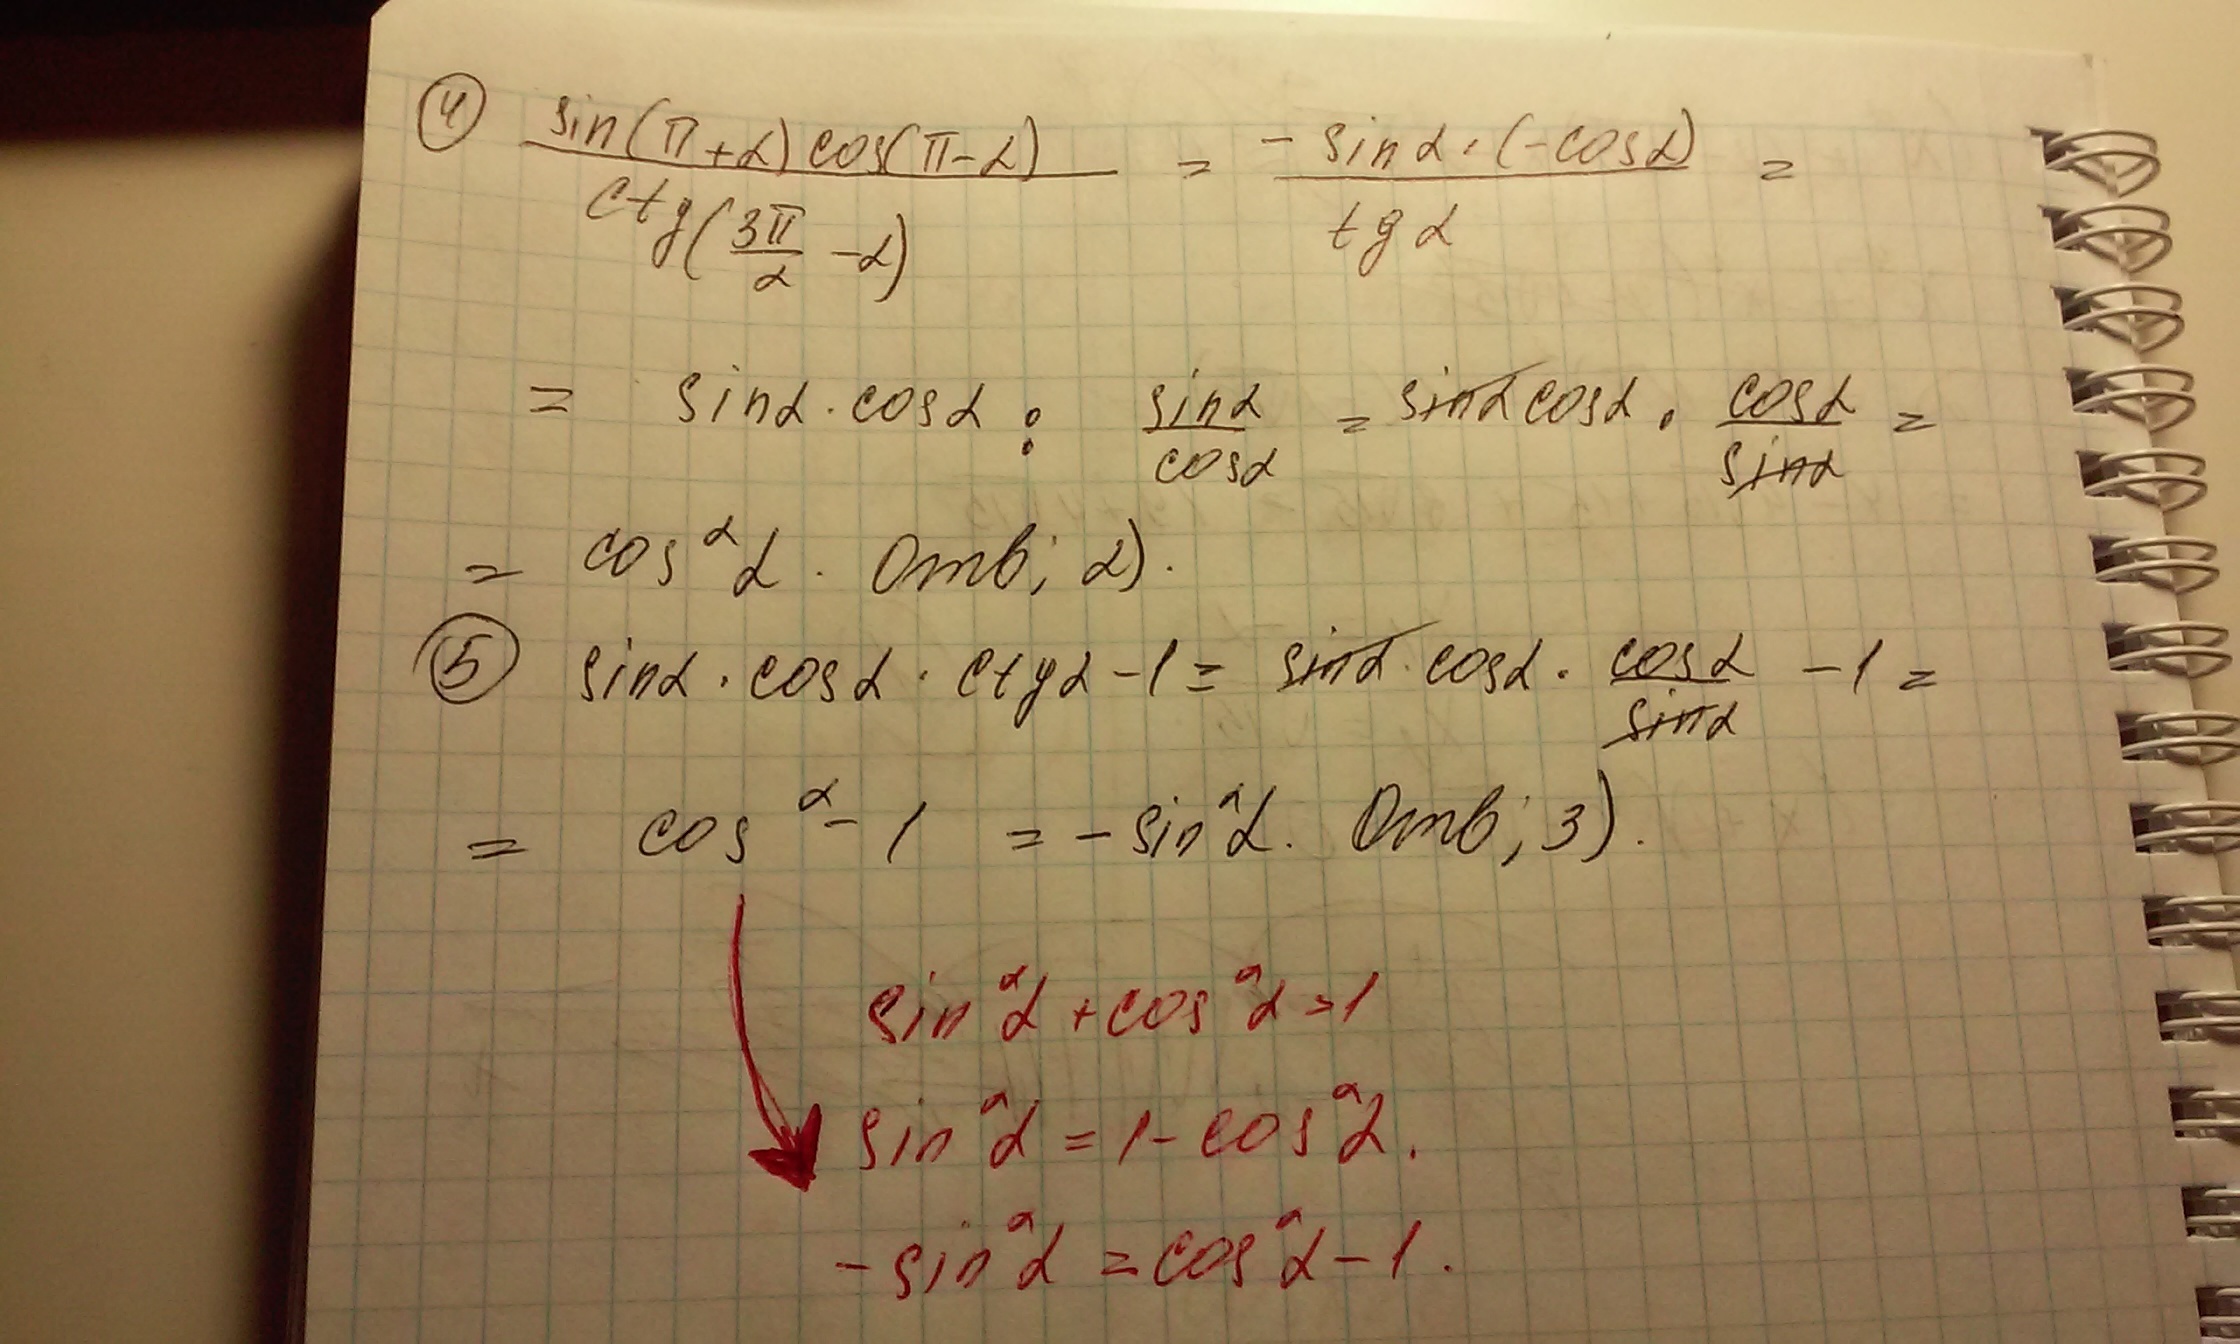 ④ sin(π+α)cos(π-α) / ctg(3π/2 -α) = -sinα·(-cosα) / tgα =
= sinα·cosα : sinα/cosα = sinαcosα · cosα/sinα =
= cos²α. Отв; 2).
⑤ sinα·cosα·ctgα-1= sinα·cosα· cosα/sinα -1=
= cos²-1 =-sin²α. Отв; 3).
sin²α+cos²α=1
sin²α=1-cos²α.
-sin²α=cos²α-1.